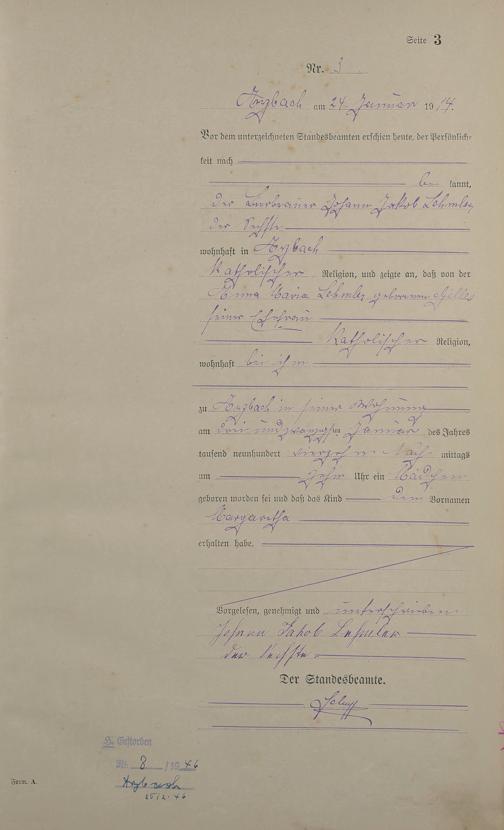 Seite 3
Nr. 3.
Arzbach am 24. Januar 1914.
Vor dem unterzeichneten Standesbeamten erschien heute, der Persönlich-
keit nach
be kannt,
der Johann Jakob Lehmler
der Sechste
wohnhaft in Arzbach
Katholischer Religion, und zeigte an, daß von der
Anna Maria Lehmler geborenen
seiner Ehefrau
Katholischer Religion,
wohnhaft bei ihm
zu Arzbach in seiner Wohnung
am drei und zwanzigsten Januar des Jahres
tausend neunhundert vierzehn Nach mittags
um zehn Uhr ein Mädchen
geboren worden sei und daß das Kind den Vornamen
Margaretha
erhalten habe.
Vorgelesen, genehmigt und unterschrieben
Johann Jakob Lehmler
der Sechste
Der Standesbeamte.
Gestorben
Nr. 8 /1946
Arzbach
Form. A.